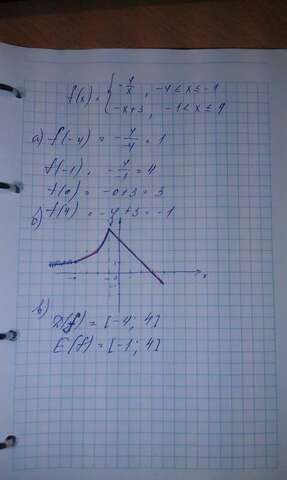 f(x) = { -4/x, -4 ≤ x ≤ -1
-x+3, -1 < x ≤ 4
а) f(-4) = -4/-4 = 1
f(-1) = -4/-1 = 4
f(0) = -0+3 = 3
б) f(4) = -4+3 = -1
в)
D(f) = [-4; 4]
E(f) = [-1; 4]